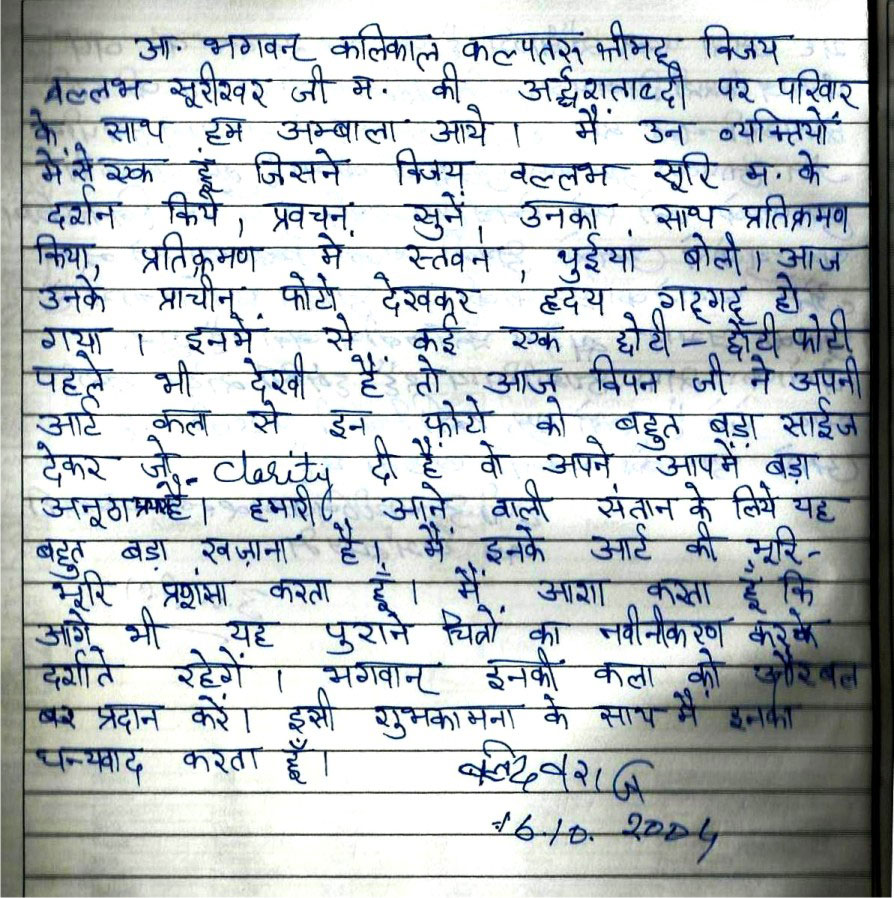 आ. भगवन् कलिकाल कल्पतरू श्रीमद् विजय
वल्लभ सूरीश्वर जी म. की अर्द्धशताब्दी पर परिवार
के साथ हम अम्बाला आये । मैं उन व्यक्तियों
में से एक हूं जिसने विजय वल्लभ सूरि म. के
दर्शन किये, प्रवचन सुनें, उनका साथ प्रतिक्रमण
किया, प्रतिक्रमण में स्तवन, थुईयां बोली। आज
उनके प्राचीन फोटो देखकर हृदय गद्गद् हो
गया । इनमें से कई एक छोटी - छोटी फोटो
पहले भी देखी हैं तो आज विपन जी ने अपनी
आर्ट कला से इन फोटो को बहुत बड़ा साईज
देकर जो clarity दी हैं वो अपने आपमें बड़ा
अनूठा है। हमारी आने वाली संतान के लिये यह
बहुत बड़ा खज़ाना है। मैं इनके आर्ट की भूरि-
भूरि प्रशंसा करता हूँ। मैं आशा करता हूँ कि
आगे भी यह पुराने चित्रों का नवीनीकरण करके
दर्शाते रहेगें । भगवान् इनकी कला को और बल
प्रदान करें। इसी शुभकामना के साथ मैं इनका
धन्यवाद करता हूँ।
16.10. 2004